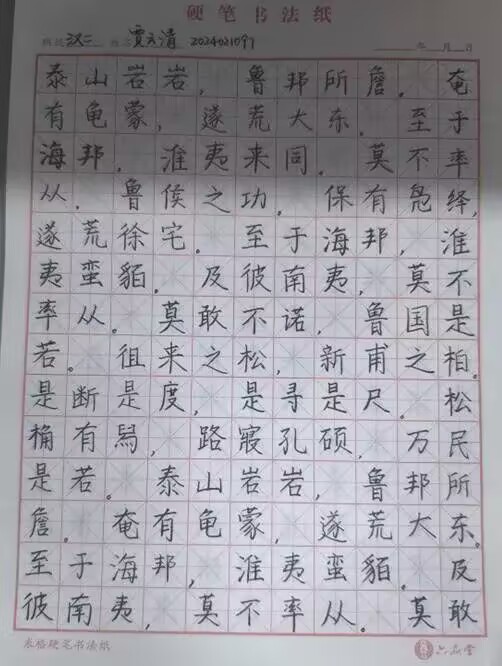 硬笔书法纸
班级 汉二 姓名 贾云清 2024021097 年 月 日
泰山岩岩，鲁邦所詹。奄
有龟蒙，遂荒大东。至于
海邦，淮夷来同。莫不率
从，鲁侯之功。保有凫绎，
遂荒徐宅。至于海邦，淮
夷蛮貊。及彼南夷，莫不
率从。莫敢不诺，鲁国是
若。徂来之松，新甫之柏。
是断是度，是寻是尺。松
桷有舄，路寝孔硕，万民
是若。泰山岩岩，鲁邦所
詹。奄有龟蒙，遂荒大东。
至于海邦，淮夷蛮貊。及
彼南夷，莫不率从。莫敢
米格硬笔书法纸 六品堂